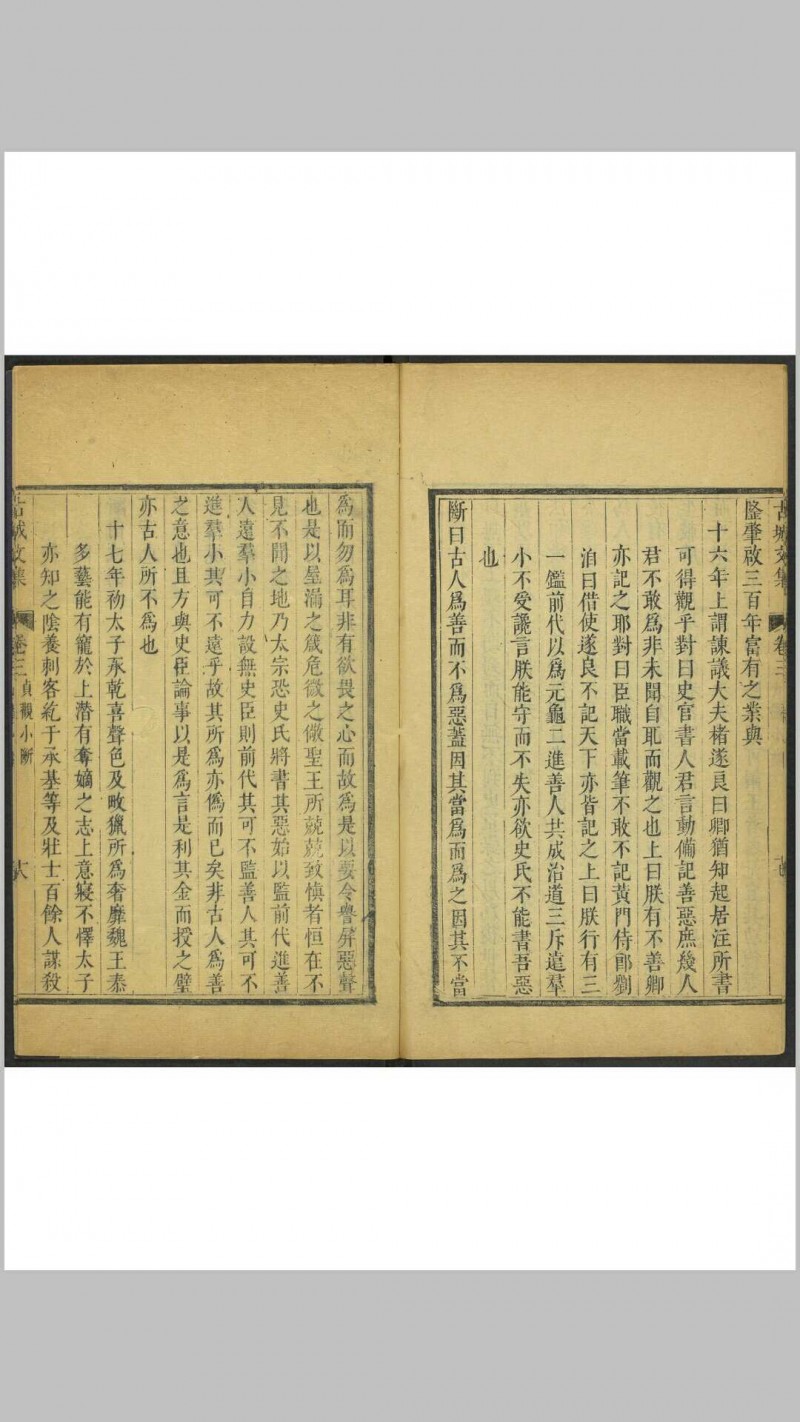 古城文集 卷三
隆肇啟三百年富有之業與
十六年上謂諫議大夫褚遂良曰卿猶知起居注所書
可得觀乎對曰史官書人君言動備記善惡庶幾人
君不敢爲非未聞自取而觀之也上曰朕有不善卿
亦記之耶對曰臣職當載筆不敢不記黃門侍郎劉
洎曰借使遂良不記天下亦皆記之上曰朕行有三
一鑑前代以爲元龜二進善人共成治道三斥遠羣
小不受讒言朕能守而不失亦欲史氏不能書吾惡
也
斷曰古人爲善而不爲惡蓋因其當爲而爲之因其不當
爲而勿爲耳非有欲畏之心而故爲是以要令譽屏惡聲
也是以屋漏之箴危微之儆聖王所兢兢致愼者恒在不
見不聞之地乃太宗恐史氏將書其惡始以監前代進善
人遠羣小自力設無史臣則前代其可不監善人其可不
進羣小其可不遠乎故其所爲亦僞而已矣非古人爲善
之意也且方與史臣論事以是爲言是利其金而授之璧
亦古人所不爲也
十七年初太子承乾喜聲色及畋獵所爲奢靡魏王泰
多藝能有寵於上潛有奪嫡之志上意寖不懌太子
亦知之陰養刺客紇于承基等及壯士百餘人謀殺
古城文集 卷三 貞觀小斷